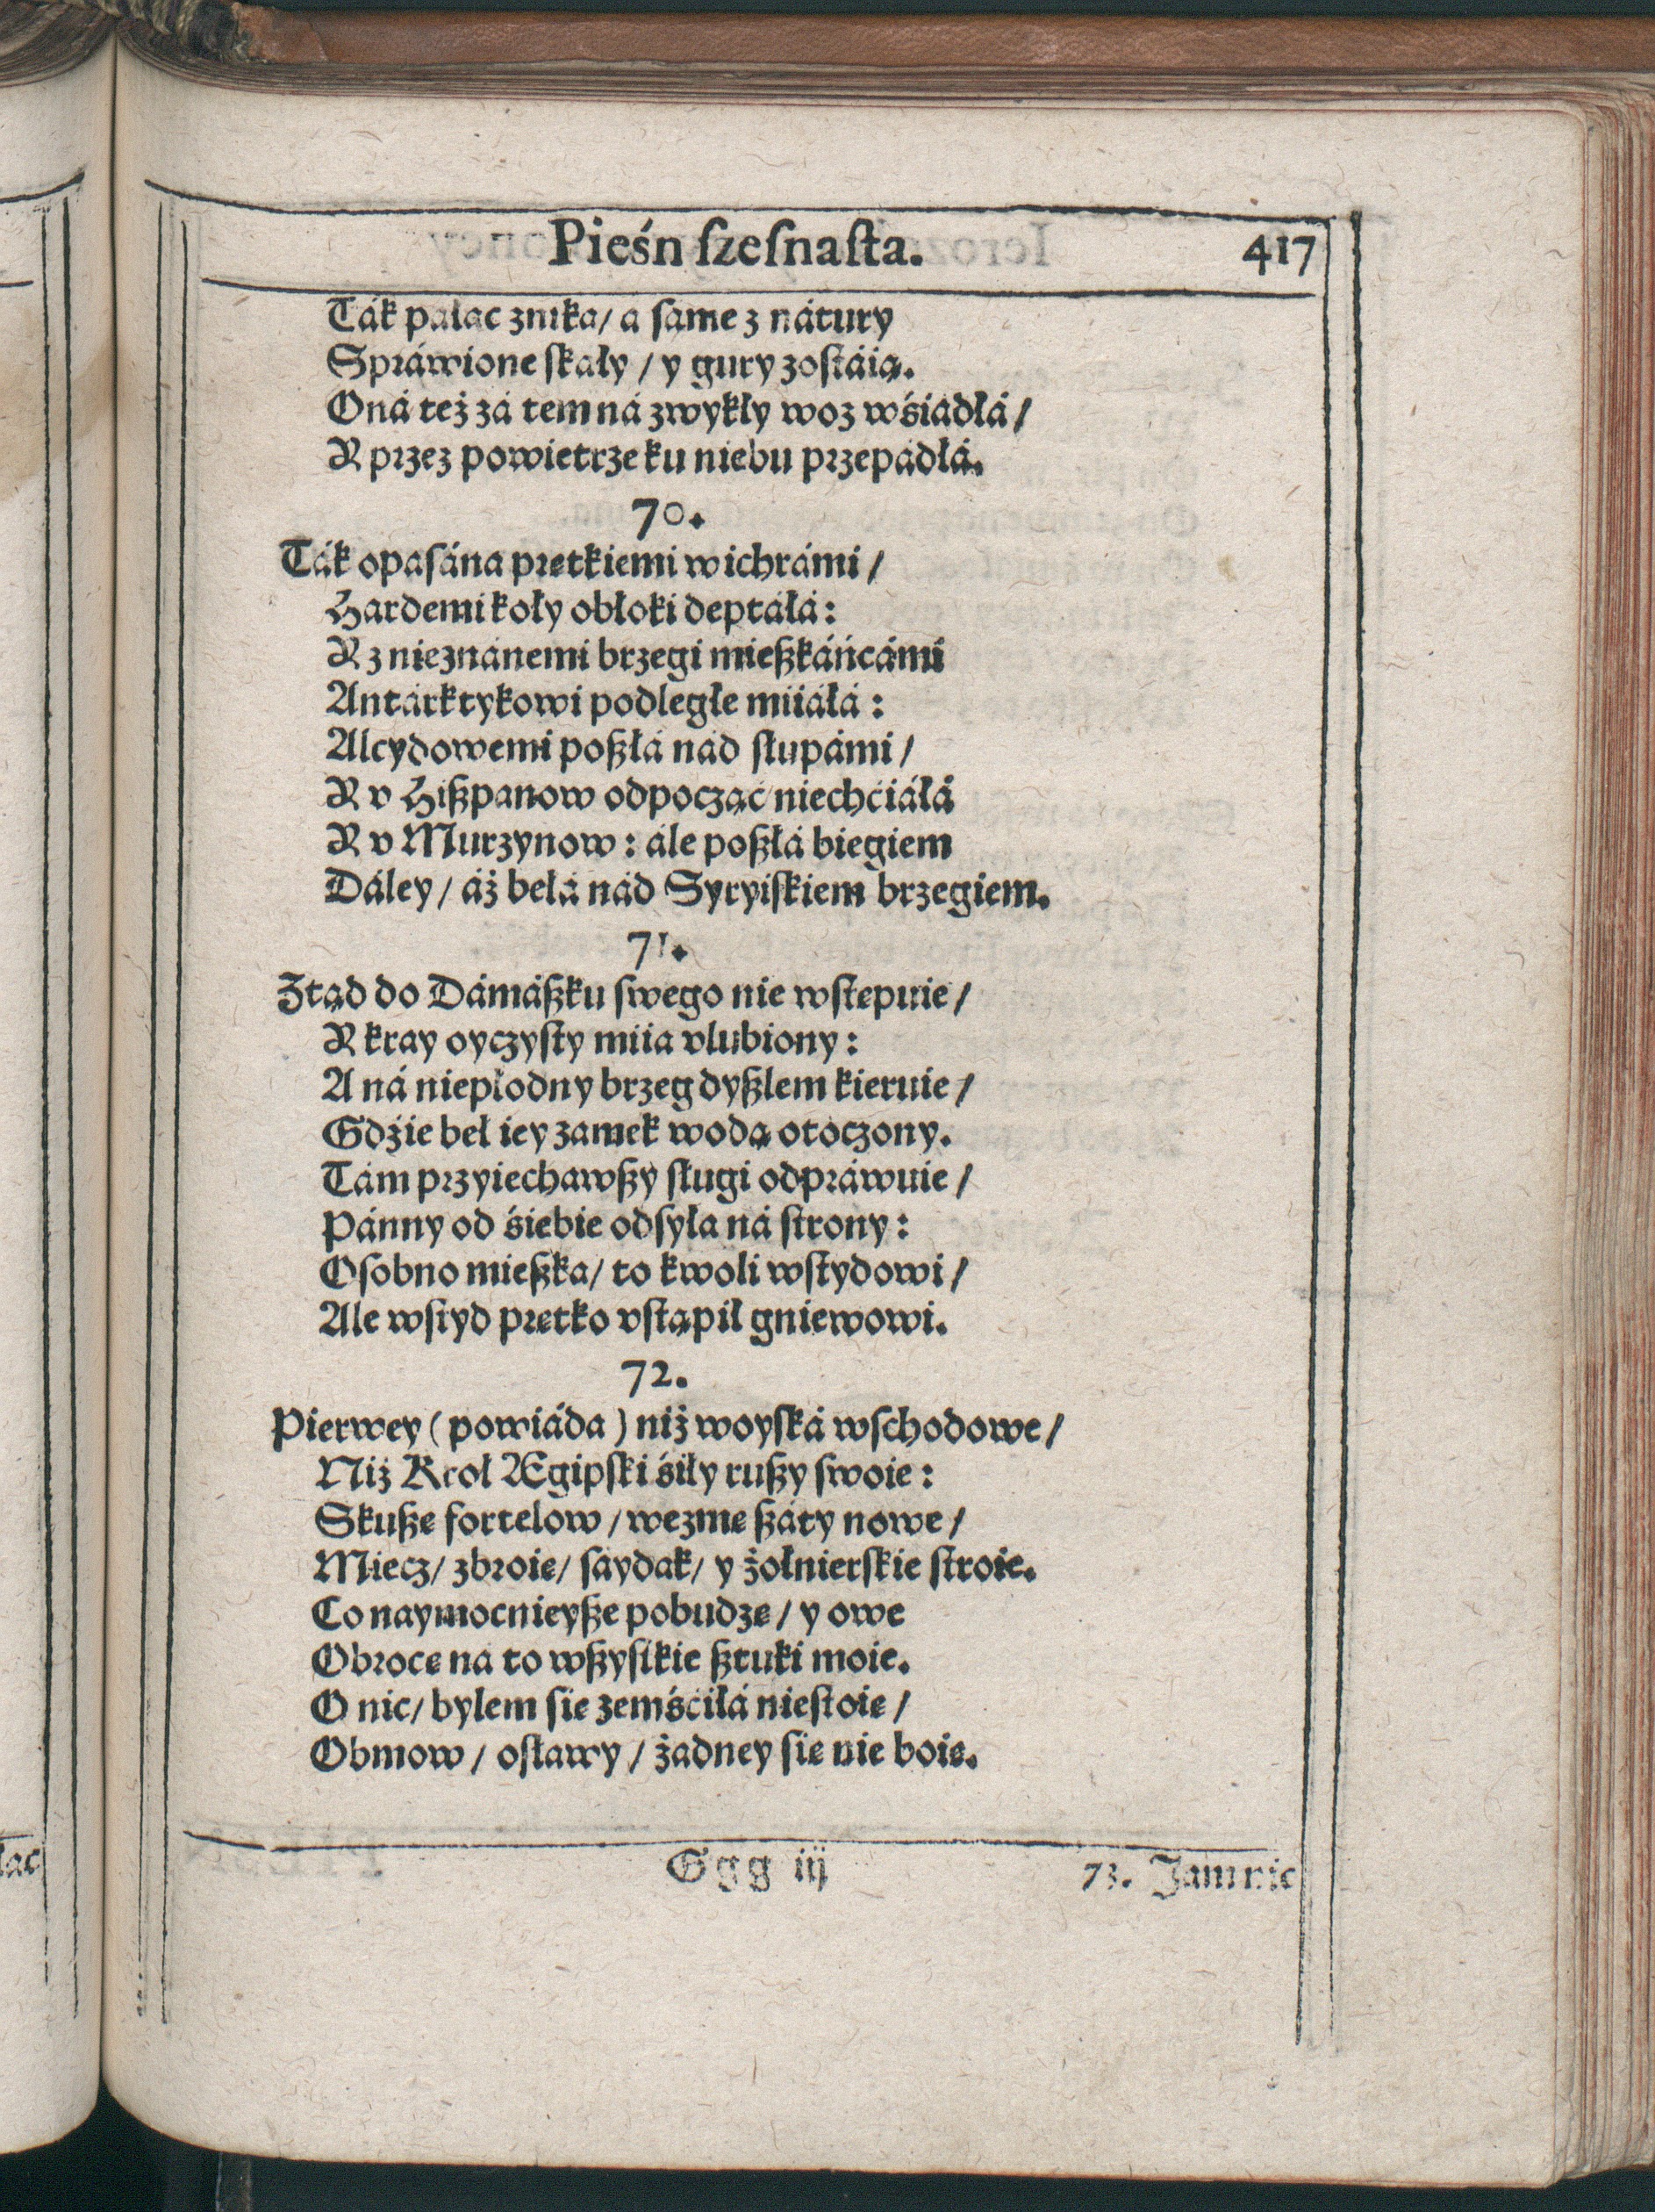 Pieśń ſzeſnaſta. 417
Ták pałac znika/ a ſáme z nátury
Spráwione ſkáły / y gury zoſtáią.
Oná też zá tem ná zwykły woz wśiádłá /
Y przez powietrze ku niebu przepádłá.
70.
Ták opaſána prętkiemi wichrámi /
Hardemi koły obłoki deptáłá:
Y z nieznánemi brzegi mieſzkáńcámi
Antárktykowi podległe miiáłá :
Alcydowemi poſzłá nád ſłupámi /
Y v Hiſzpanow odpocząć niechćiáłá
Y v Murzynow : ále poſzłá biegiem
Dáley / áż belá nád Syryiſkiem brzegiem.
71.
Ztąd do Dámáſzku ſwego nie wſtępuie /
Y kray oyczyſty miia vlubiony :
A ná niepłodny brzeg dyſzlem kieruie /
Gdźie beł iey zamek wodą otoczony.
Tám przyiechawſzy ſługi odpráwuie /
Pánny od śiebie odſyła ná ſtrony :
Oſobno mieſzka/ to kwoli wſtydowi /
Ale wſtyd prętko vſtąpił gniewowi.
72.
Pierwey ( powiáda ) niż woyſká wſchodowe /
Niż Krol Ægipſki śiły ruſzy ſwoie :
Skuſzę fortelow / wezmę ſzáty nowe /
Miecz/ zbroię/ ſáydak/ y żołnierſkie ſtroie.
Co naymocnieyſze pobudzę / y owe
Obrocę na to wſzyſtkie ſztuki moie.
O nic/ bylem ſię zemśćiłá nieſtoię /
Obmow / oſławy / żadney ſię nie boię.
Ggg iij 73. Jam nic
łac